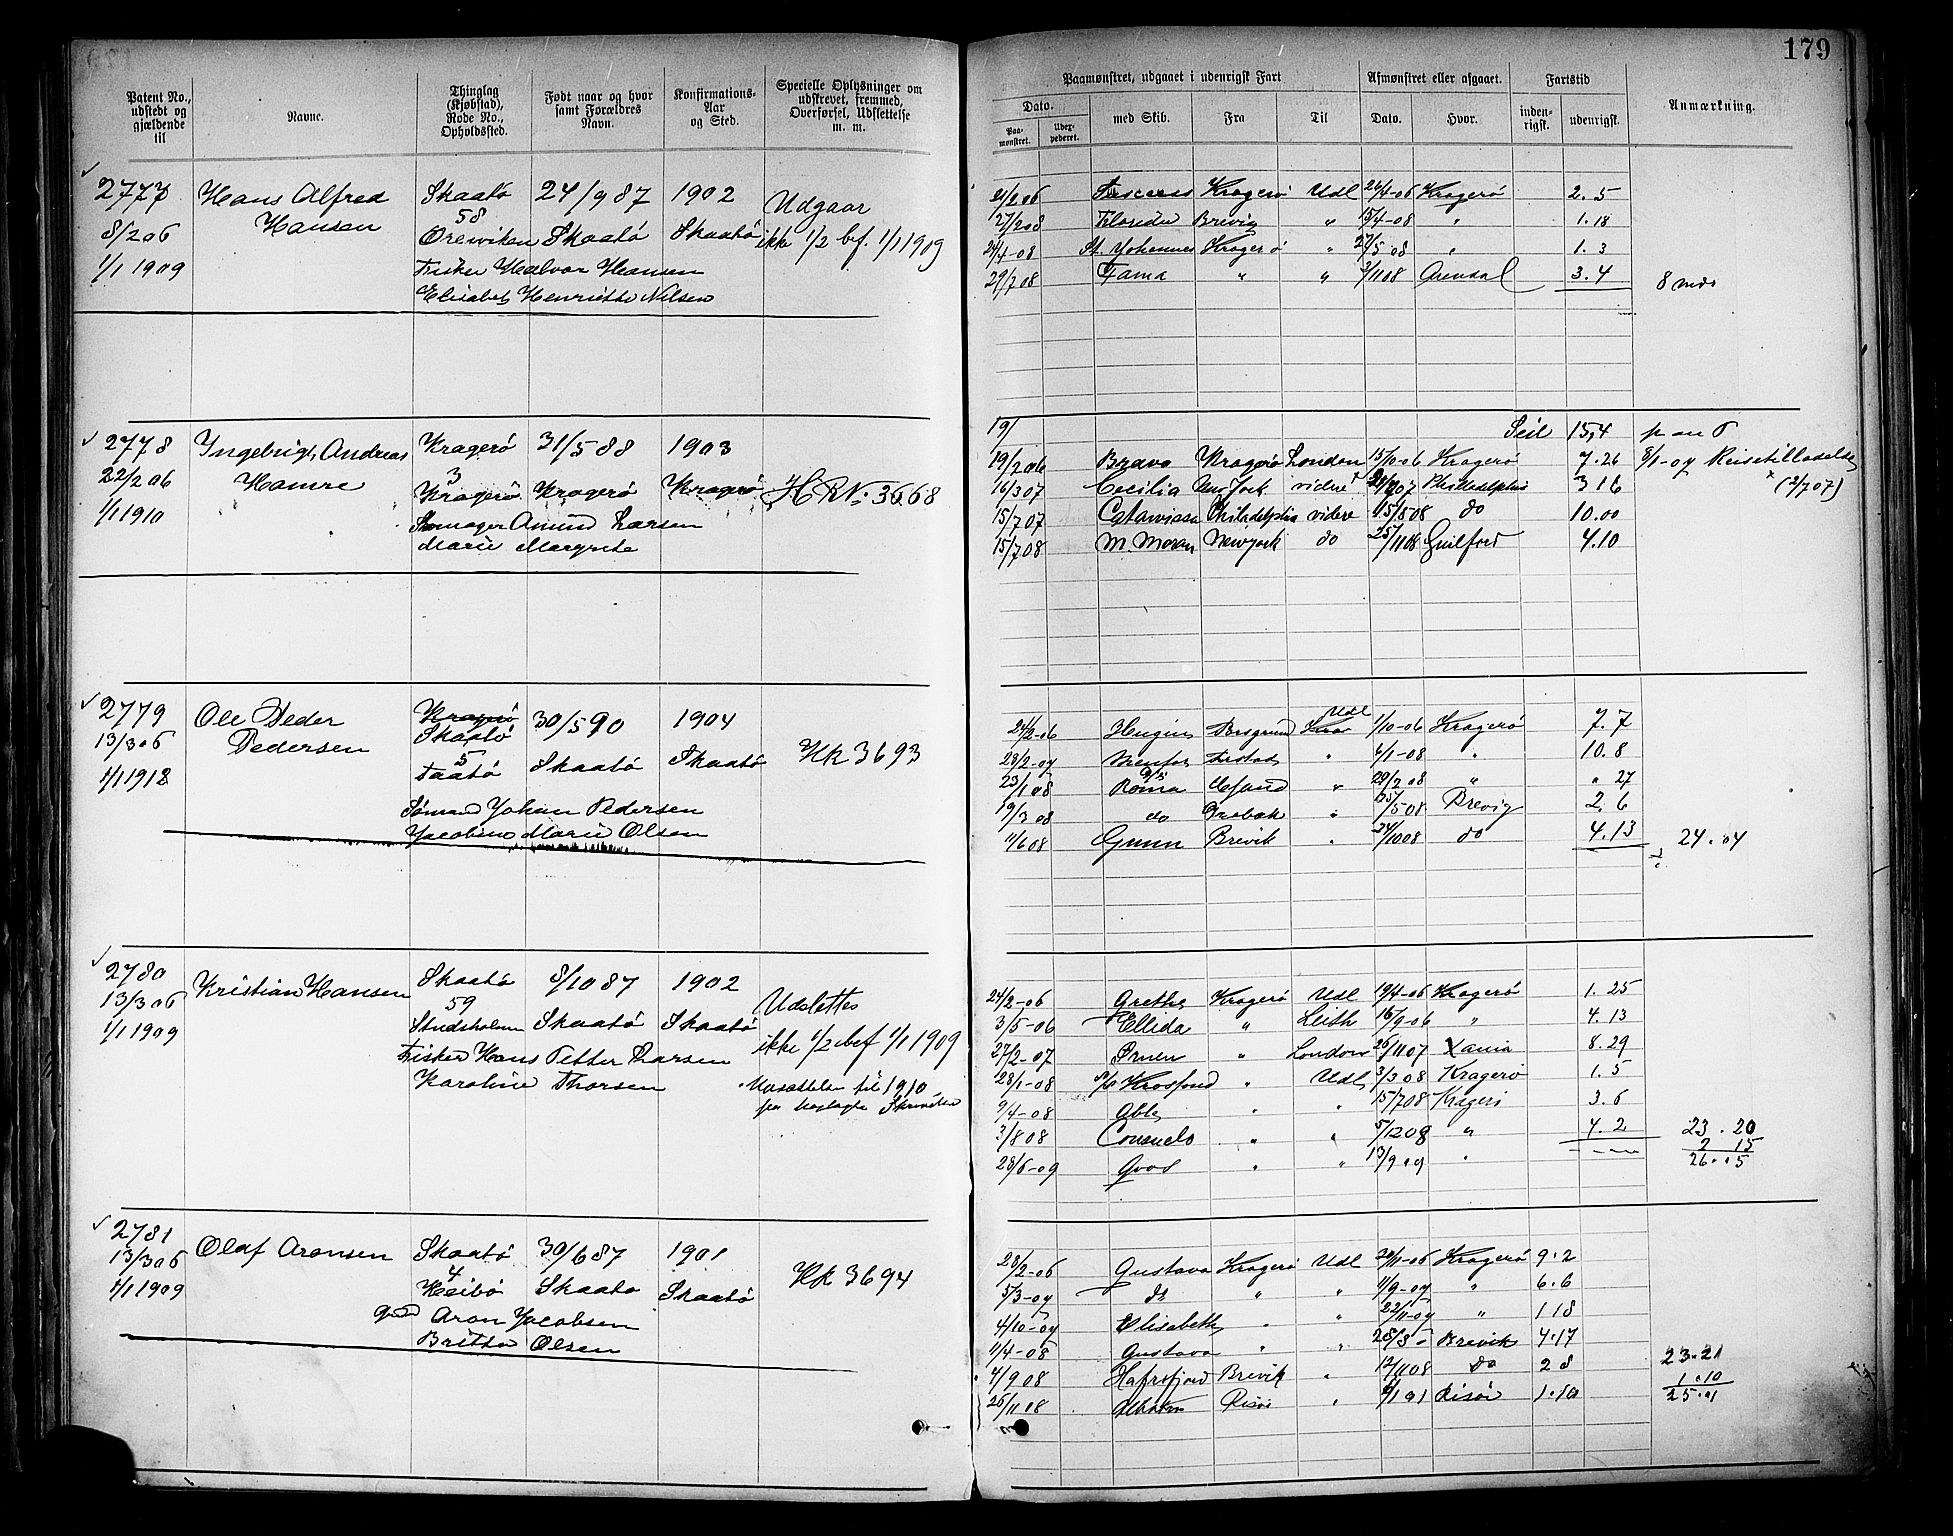 179
Patent No., udstedt og gjældende til
Navne.
Thinglag (Kjøbstad), Rode No., Opholdssted.
Født naar og hvor samt Forældres Navn.
Konfirmations- Aar og Sted.
Specielle Oplysninger om udskrevet, fremmed, Overførsel, Udslettelse m. m.
Paamønstret, udgaaet i udenrigsk Fart
Afmønstret eller afgaaet.
Fartstid
Anmærkning.
Dato.
med Skib.
Fra
Til
Dato.
Hvor.
inden- rigsk.
udenrigsk.
Paa- mønstret.
Udex- pederet.
2777 Hans Alfred Skaatö 24/9 87 1902 Udgaar
8/2 06 Hansen 58
1/1 1909 Örewiken Skaatö Skaatö ikke 1/2 bef. 1/1 1909
Fisker Halvor Hansen
Elisabet Henriette Nilsen
21/2 06 Kragerö Udl 24/4-06 Kragerö 2. 5
27/2 08 Florida Brevig " 15/4-08 " 1. 18
24/4-08 St. Johannes Kragerö " 27/5 08 " 1. 3
29/7 08 Fama " " 3/11 08 Arendal 3. 4 8 mdr
2778 Ingebrigt Andreas Kragerö 31/5 88 1903
22/2 06 Hamre 3
1/1 1910 Kragerö Kragerö Kragerö HRNo. 3668
Skomager Amund Larsen
Marie Margrete
19/ Seil 15,4
19/2 06 Bravo Kragerö London 15/10-06 Kragerö 7. 26 8/1-07 Reisetilladelse
16/3 07 Cecilia New York videre Philadelphia 3 16 (2/7 07)
15/7 07 Catawissa Philadelphia videre 15/5 08 do 10.00
15/7 08 M. Moran Newyork do 25/11 08 Guilford 4.10
2779 Ole Peder Kragerö 30/5 90 1904
13/3 06 Pedersen Skaatö
1/1 1912 5
Taatö Skaatö Skaatö HR 3693
Sömand Johan Pedersen
Jacobine Marie Olsen
24/2-06 Hugin Porsgrund Udl 1/10-06 Kragerö 7. 7
23/2-07 " 4/1-08 " 10. 8
23/1 08 Roma " 29/2 08 " " 27
19/3 08 do Drobak " 25/5 08 Brevig 2, 6
11/6 08 Gunn Brevik " 24/10 08 do 4. 13 24. 04
2780 Kristian Hansen Skaatö 8/10 87 1902
13/3 06 59 Udslettes
1/1 1909 Studsholmen Skaatö Skaatö ikke 1/2 bef 1/1 1909
Fisker Hans Petter Larsen
Karoline Thorsen til 1910
24/2-06 Grethe Kragerö Udl 19/4-06 Kragerö 1. 25
3/5-06 Ellida " Leith 16/9 06 " 4. 13
27/2-07 Örnen " London 26/11 07 Xania 8. 29
28/1-08 Krosfond " Udl 3/3 08 Kragerö 1. 5
9/4-08 Abh. " " 15/7 08 Kragerö 3. 6
3/8 08 Consuelo " " 5/12 08 " 4. 2 23. 20
2 15
28/6-09 " " 13/9 09 " 26. . 5
2781 Olaf Aronsen Skaatö 30/6 87 1901
13/3 06 4
1/1 1909 Heibö Skaatö Skaatö HR 3694
Aron Jacobsen
Britta Olsen
28/2-06 Gustava Kragerö Udl 20/11-06 Kragerö 9. 2
5/3-07 do " " 11/9-07 " 6. 6
4/10-07 Elisabeth " " 22/11-07 " 1 18
11/4-08 Gustava " " 28/8- Brevik 4. 17
4/9 08 Hafrsfjord Brevik " 12/11 08 do 2 8 23. 21
1. 10
26/11 08 Risör " Risör 1. 10 25. 01